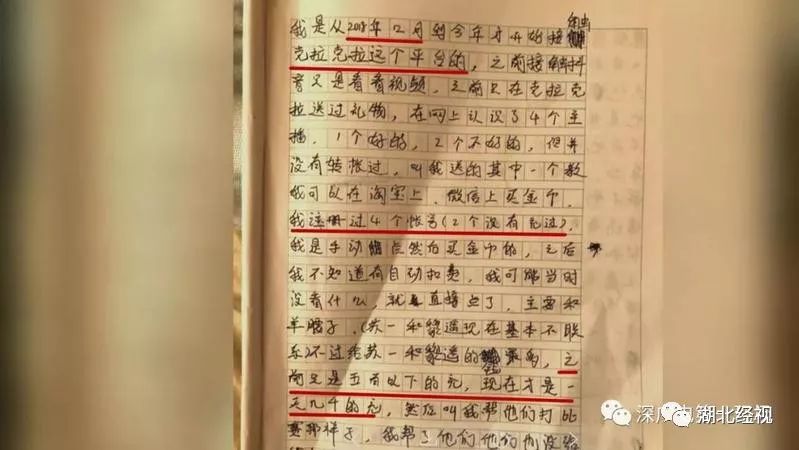 我是从2018年2月到今年才开始接触
克拉克拉这个平台的，之前接触抖
音只是看看视频，之前只在克拉克
拉送过礼物，在网上认识了4个主
播，1个好的，2个不好的，但并
没有转帐过，叫我送的其中一个教
我可以在淘宝上、微信上买金币，
我注册过4个帐号（2个没有充过），
我是手动点然后买金币的，之后
我不知道有自动扣费，我可能当时
没看什么，就直接点了，主要和
羊腰子，（苏一和黎遥现在基本不联
系）不过给苏一和黎遥的，之
前只是五百以下的充，现在才是一
天几千的充，然后叫我帮他们打比
赛那样子，我帮了他们他们也没给
湖北经视